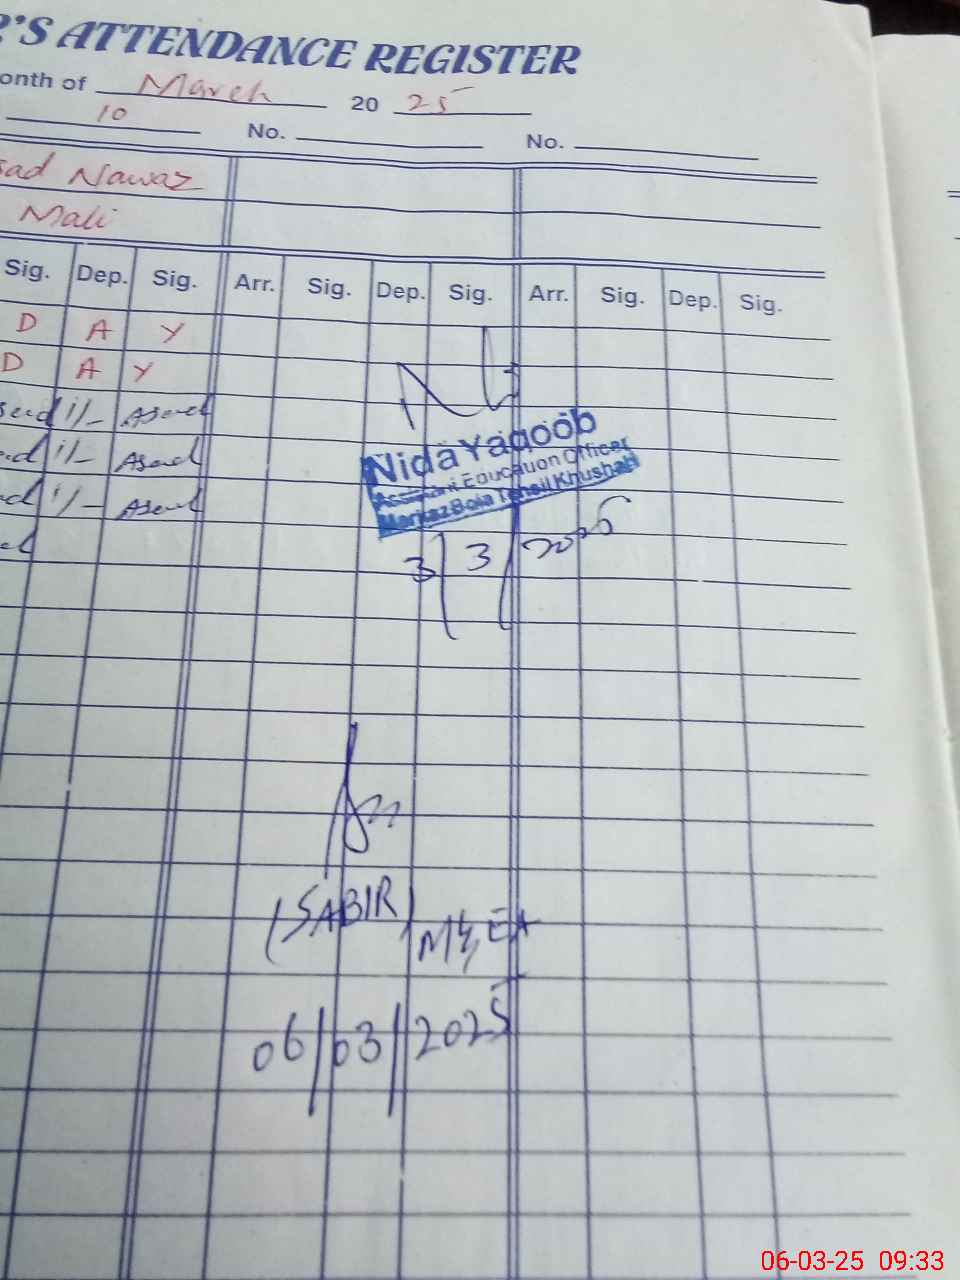 R'S ATTENDANCE REGISTER
onth of March 20 25
10 No. No.
sad Nawaz
Mali
Sig. Dep. Sig. Arr. Sig. Dep. Sig. Arr. Sig. Dep. Sig.
D A Y
D A Y
1/- Asad
1/- Asad
1/- Asad
Nida Yaqoob
Assistant Education Officer
Markaz Bola Tehsil Khushab
3/3/2025
(SABIR) M&EA
06/03/2025
06-03-25 09:33